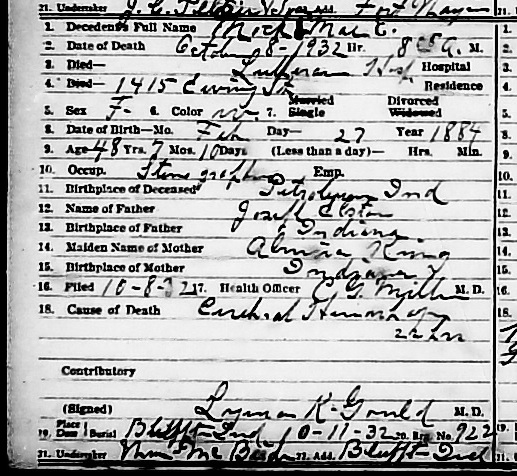 21. Undertaker J. C. Add. Fort Wayne
1. Decedent's Full Name Mock Mae E.
2. Date of Death October 8-1932 Hr. 8 05 A. M.
3. Died— Lutheran Hosp Hospital
4. Died— 1415 Ewing St Residence
5. Sex F 6. Color w 7. Married Single Divorced Widowed
8. Date of Birth—Mo. Feb Day— 27 Year 1884
9. Age 48 Yrs. 7 Mos. 10 Days (Less than a day)— Hrs. Min.
10. Occup. Stenographer Emp.
11. Birthplace of Deceased Petroleum Ind
12. Name of Father Joseph Elston
13. Birthplace of Father Indiana
14. Maiden Name of Mother Almira King
15. Birthplace of Mother Indiana
16. Filed 10-8-32 17. Health Officer C. G. Miller M. D.
18. Cause of Death Cerebral Hemorrhage
22 hr
Contributory
(Signed) Lyman K. Gould M. D.
19. Place Date Burial Bluffton Ind 10-11-32 20. Reg. No. 922
21. Undertaker Thoma & McBride 22. Add. Bluffton Ind